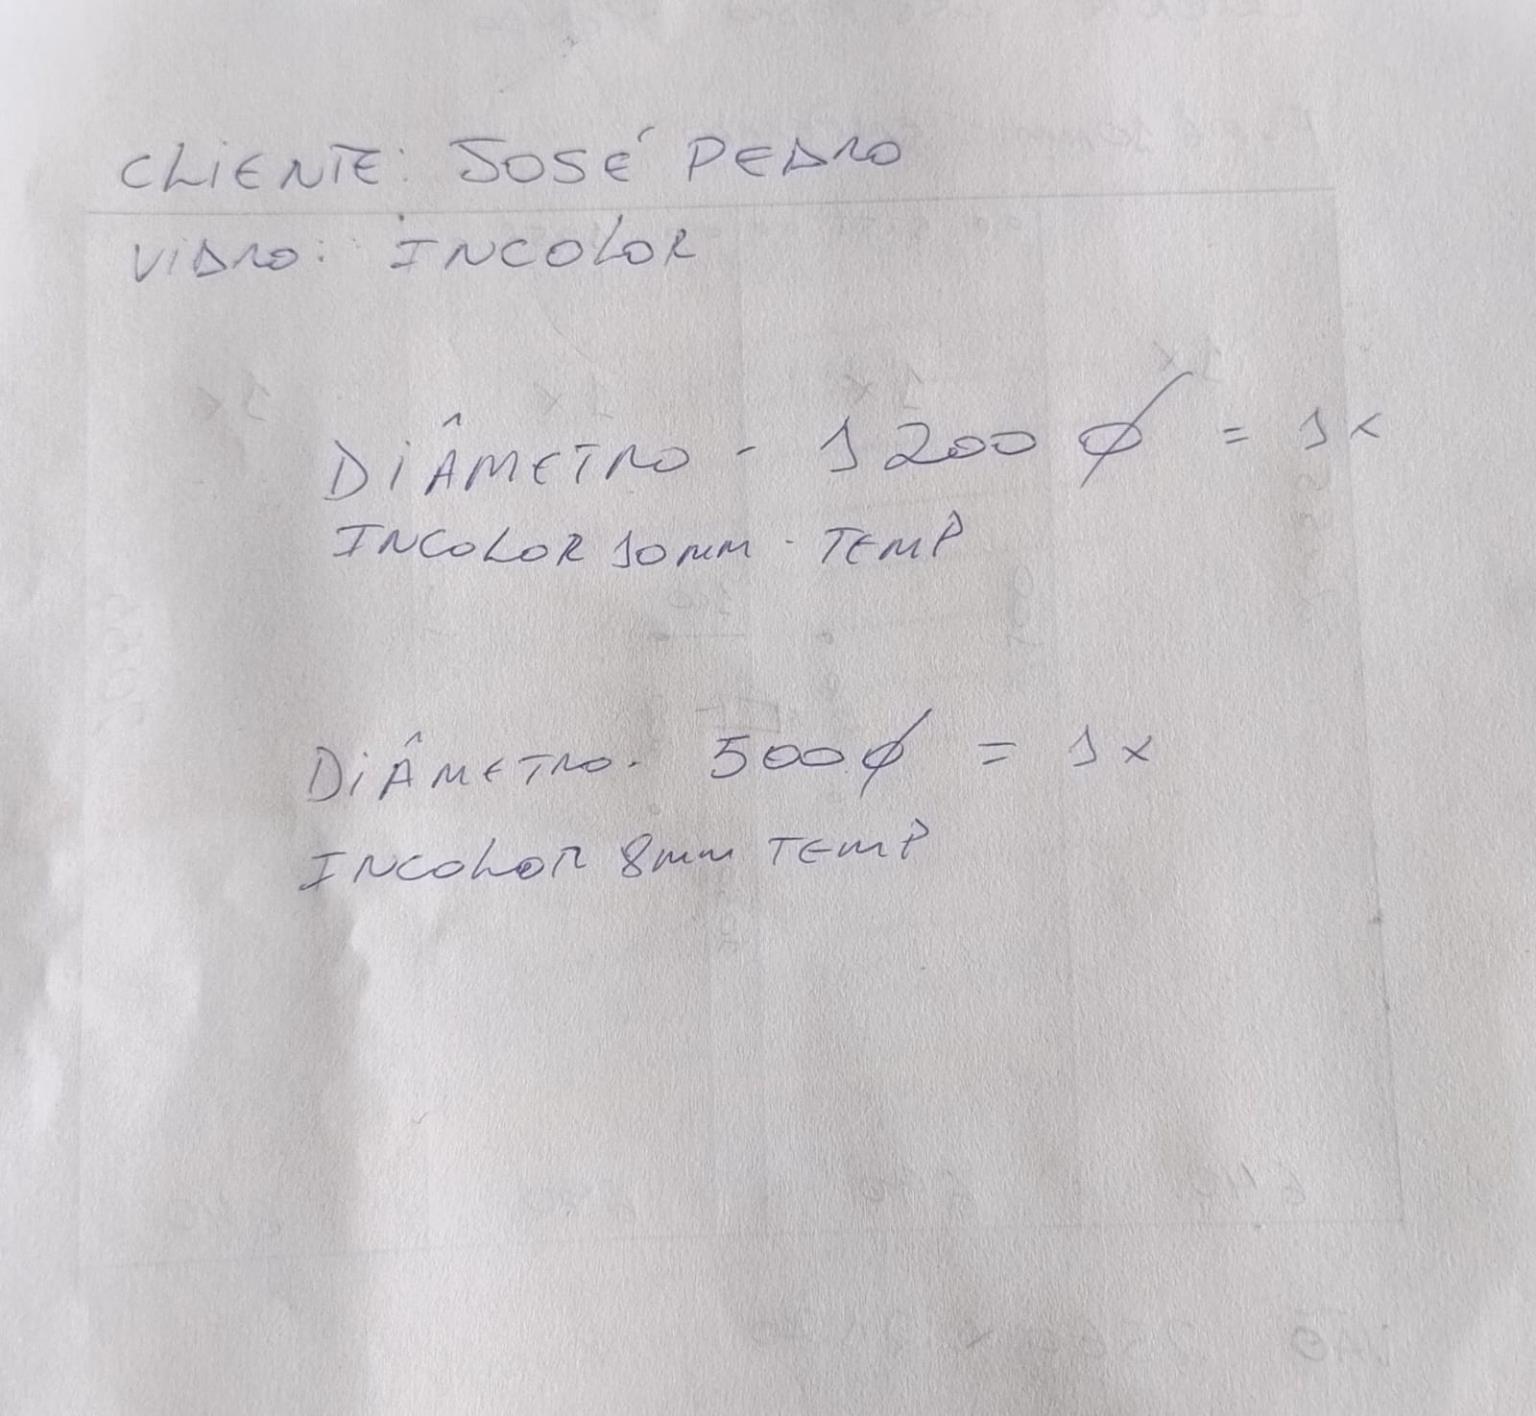 CLIENTE: JOSÉ PEDRO
VIDRO: INCOLOR
DIÂMETRO - 1200 Ø = 1x
INCOLOR 10MM - TEMP
DIÂMETRO - 500 Ø = 1x
INCOLOR 8mm TEMP